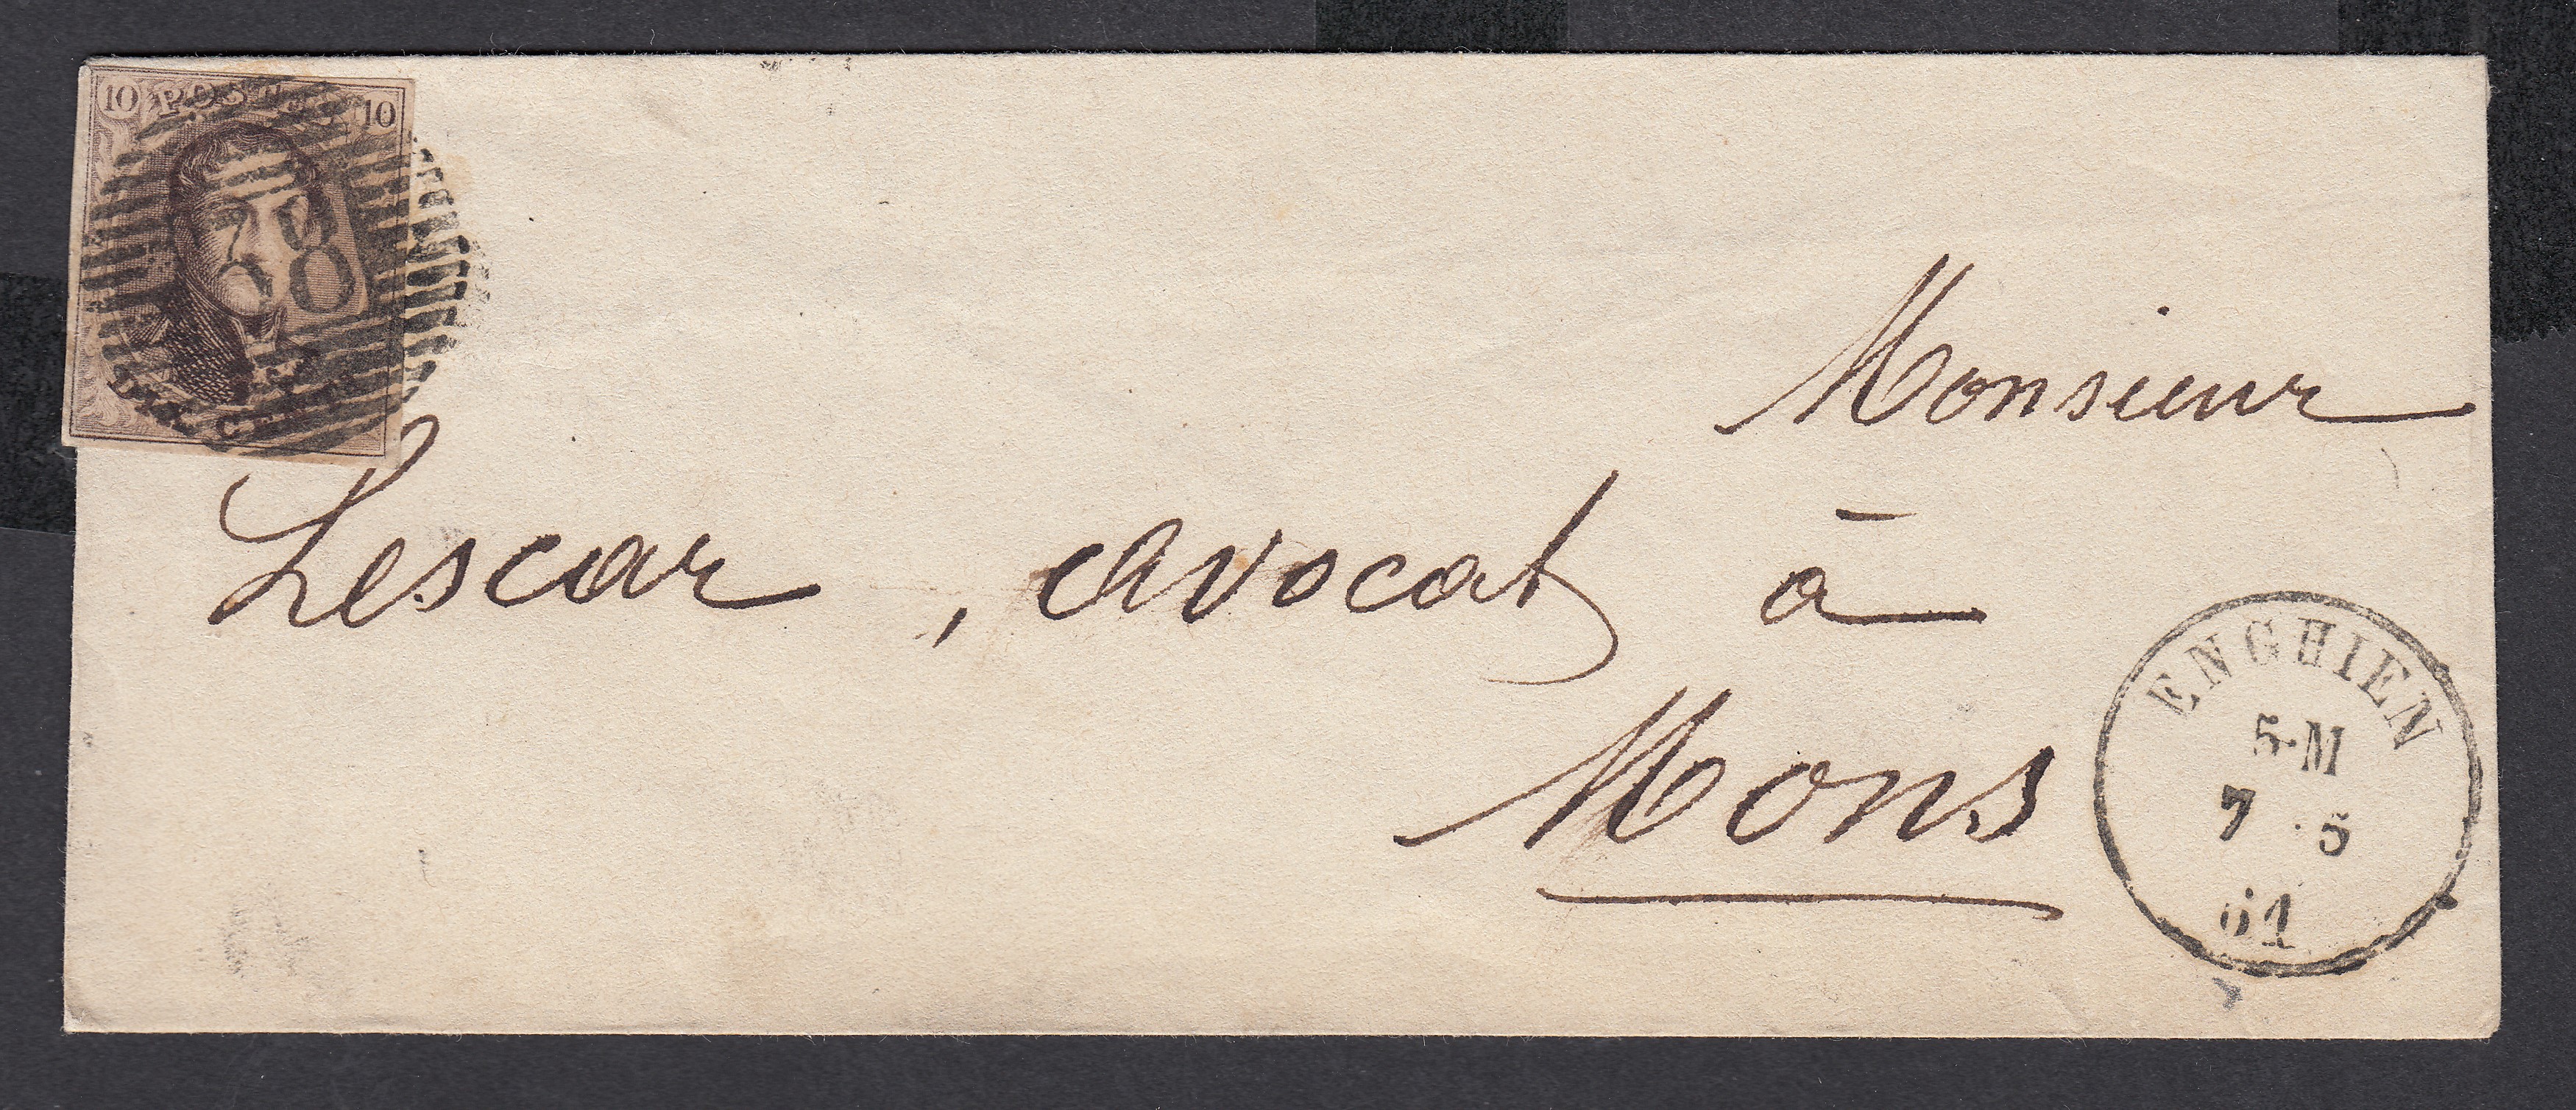 10 POSTES 10
78
DIX CENTS
Monsieur
Lescar, avocat à
Mons
ENGHIEN
5-M
7 5
61